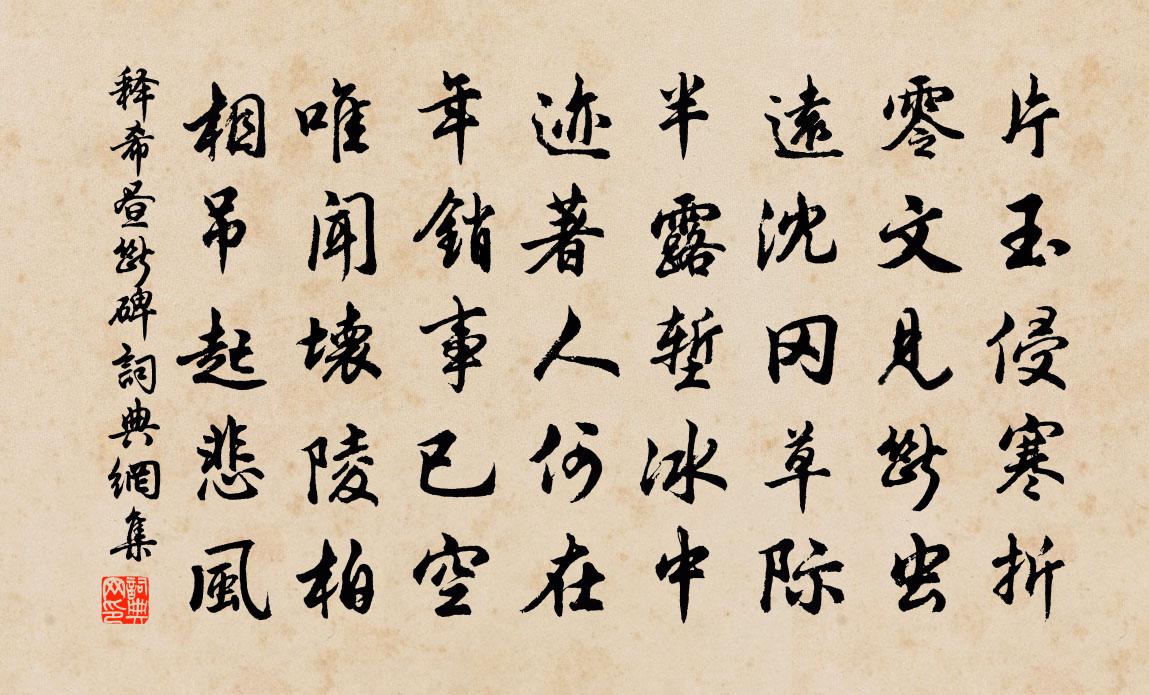 片玉侵寒折
零文見斷虫
遠沈冈草际
半露堑冰中
迹著人何在
年銷事已空
唯闻壊陵柏
相吊起悲風
释希昼斷碑詞典網集
詞典网印